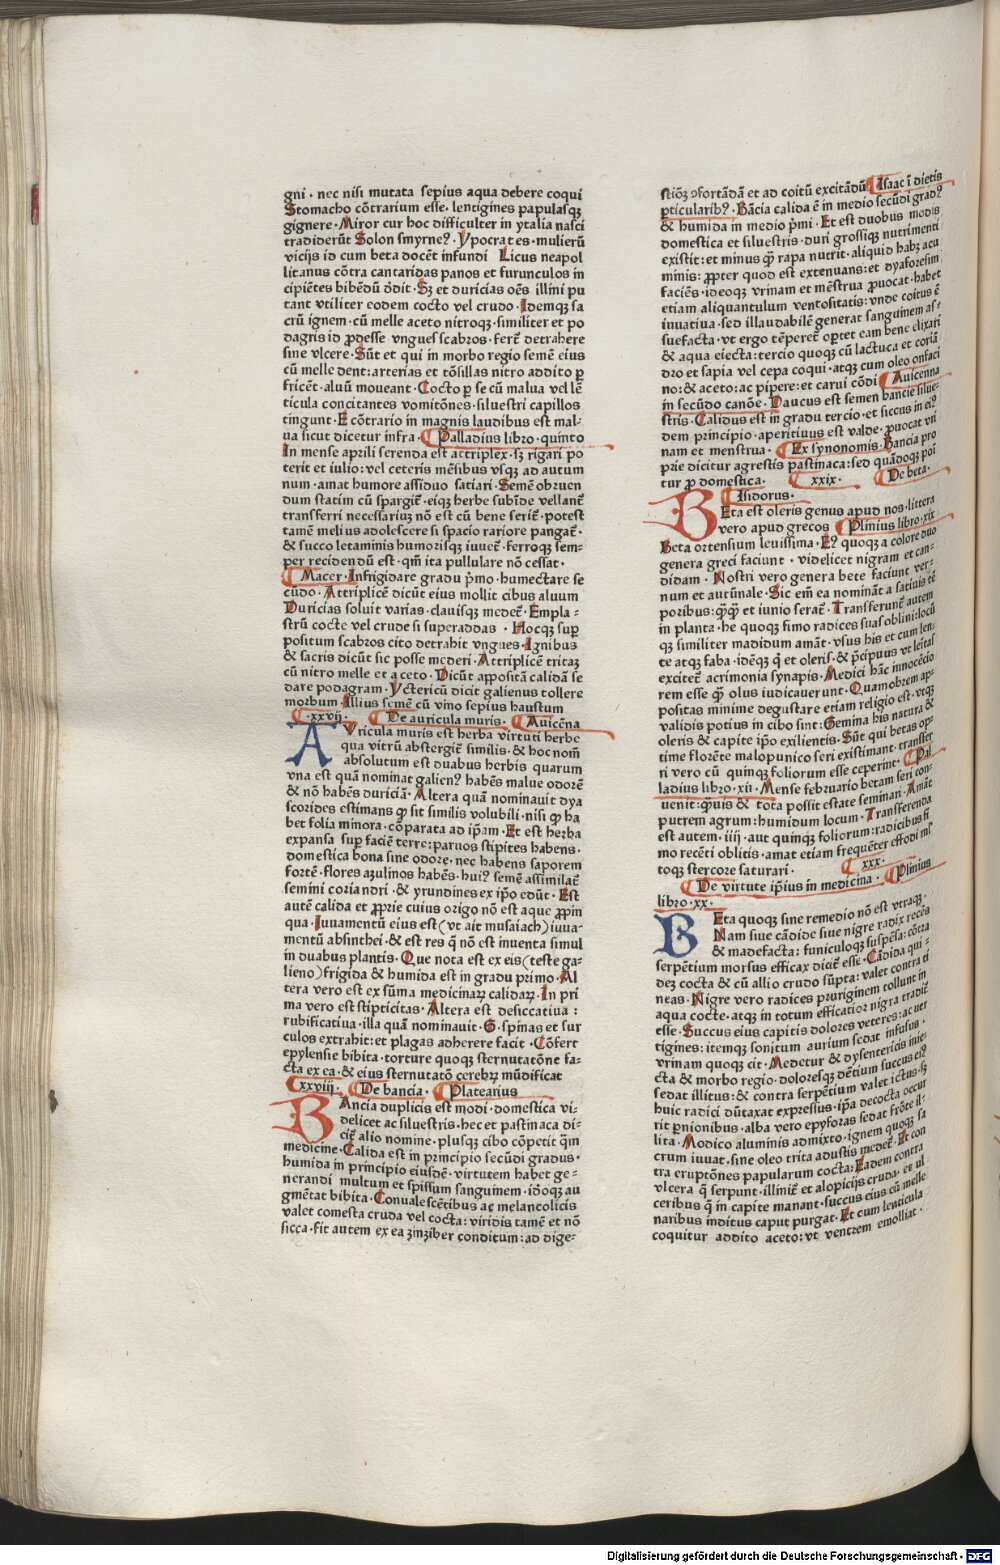 gni · nec nisi mutata sepius aqua debere coqui
Stomacho cōtrarium esse · lentigines papulasqꝫ
gignere · Miror cur hoc difficulter in ytalia nasci
tradiderūt Solon smyrneꝰ · Ypocrates · mulierū
vicijs id cum beta docēt infundi Licus neapol
litanus cōtra cantaridas panos et furunculos in
cipiētes bibēdū ōdit · Sꝫ et duricias oēs illini pu
tant vtiliter eodem cocto vel crudo · Idemqꝫ sa
crū ignem · cū melle aceto nitroqꝫ · similiter et po
dagris id ꝓdesse vngues scabros · fert̄ detrahere
sine vlcere · Sūt et qui in morbo regio semē eius
cū melle dent : arterias et tōsillas nitro addito ꝑ
fricēt · aluū moueant · Cocto ꝑ se cū malua vel lē
ticula concitantes vomitōnes · siluestri capillos
tingunt · E cōtrario in magnis laudibus est mal-
ua sicut dicetur infra · Palladius libro · quinto
In mense aprili serenda est attriplex · sꝫ rigari po
terit et iulio : vel ceteris mēsibus vsqꝫ ad autum
num · amat humore assiduo satiari · Semē obruen
dum statim cū spargit̄ · eiqꝫ herbe subīde vellant̄
transferri necessariuꝫ nō est cū bene serit̄ · potest
tamē melius adolescere si spacio rariore pangat̄ ·
& succo letaminis humorisqꝫ iuuet̄ · ferroqꝫ sem-
per recidendū est · qm̄ ita pullulare nō cessat ·
Macer · Infrigidare gradu p̄mo · humectare se
cūdo · Attriplicē dicūt eius mollit cibus aluum
Duricias soluit varias · clauisqꝫ medet̄ · Empla-
strū cocte vel crude si superaddas · Hocqꝫ suꝑ
positum scabros cito detrahit vngues · Ignibus
& sacris dicūt sic posse mederi · Attriplicē tritaꝫ
cū nitro melle et aceto · Dicūt appositā calidā se
dare podagram · Yctericū dicit galienus tollere
morbum · Illius semē cū vino sepius haustum
xxvij · De auricula muris · Auicēna
AVricula muris est herba virtuti herbe
qua vitrū abstergit̄ similis · & hoc nom̄
absolutum est duabus herbis quarum
vna est quā nominat galienꝰ habēs malue odorē
& nō habēs duriciā · Altera quā nominauit dya
scorides estimans ꝙ sit similis volubili · nisi ꝙ ha
bet folia minora · cōparata ad ip̄am · Et est herba
expansa suꝑ faciē terre : paruos stipites habens ·
domestica bona sine odore · nec habens saporem
fortē · flores azulinos habēs · huiꝰ semē assimilat̄
semini coriandri · & yrundines ex ip̄o edūt · Est
autē calida et ꝓprie cuius origo nō est aque ꝓpin
qua · Iuuamentū eius est ( vt ait musaiach ) iuua-
mentū absinthei · & est res q̄ nō est inuenta simul
in duabus plantis · Que nota est ex eis ( teste ga-
lieno ) frigida & humida est in gradu primo · Al
tera vero est ex sūma medicinaꝝ calidaꝝ · In pri
ma vero est stipticitas · Altera est desiccatiua :
rubificatiua · illa quā nominauit · G · spinas et sur
culos extrahit : et plagas adherere facit · Cōfert
epylensie bibita · torture quoqꝫ sternutatōne fa-
cta ex ea · & eius sternutatō cerebꝝ mūdificat
xxviij · De bancia · Platearius
BAncia duplicis est modi · domestica vi-
delicet ac siluestris · hec et pastinaca di-
cit̄ alio nomine · plusqꝫ cibo cōpetit q̄m
medicine · Calida est in principio secūdi gradus ·
humida in principio eiusdē · virtutem habet ge-
nerandi multum et spissum sanguinem · īdoqꝫ au
gmētat bibita · Conualescētibus ac melancolicis
valet comesta cruda vel cocta : viridis tamē et nō
sicca · fit autem ex ea zinziber conditum : ad dige-
stiōꝫ ↄfortādā et ad coitū excitādū Isaac ī dietis
ꝑticularibꝰ · Bācia calida ē in medio secūdi gradꝰ
& humida in medio p̄mi · Et est duobus modis
domestica et siluestris · duri grossiqꝫ nutrimenti
existit : et minus ꝙ̄ rapa nutrit · aliquid habꝫ acu
minis : ꝓpter quod est extenuans : et dyaforesim
faciēs · ideoqꝫ vrinam et mēstrua ꝓuocat · habet
etiam aliquantulum ventositatis : vnde coitus ē
iuuatiua · sed illaudabilē generat sanguinem as-
suefacta · vt ergo tēperet̄ oꝑtet eam bene elixari
& aqua eiecta : tercio quoqꝫ cū lactuca et coriā
dro et sapia vel cepa coqui · atqꝫ cum oleo onfaci
no : & aceto : ac pipere : et carui cōdi Auicenna
in secūdo canōe · Daucus est semen bancie silue-
stris · Calidus est in gradu tercio · et siccus in eiꝰ
dem principio · aperitiuus est valde · ꝓuocat vri
nam et menstrua · Ex synonomis · Bancia pro
prie dicitur agrestis pastinaca : sed quādoqꝫ poī
tur ꝓ domestica · xxix · De beta ·
Isidorus ·
BEta est oleris genus apud nos · littera
vero apud grecos Plinius libro · xix ·
Beta ortensium leuissima · Eꝰ quoqꝫ a colore duo
genera greci faciunt · videlicet nigram et can-
didam · Nostri vero genera bete faciunt ver-
num et autūnale · Sic em̄ ea nomināt a satiuis tē
poribus : ꝙ̄ꝙ̄ et iunio serat̄ · Transferunt̄ autem
in planta · he quoqꝫ fimo radices suas oblini : locū
qꝫ similiter madidum amāt · vsus his et cum len-
te atqꝫ faba · idēqꝫ q̄ et oleris · & p̄cipuus vt leītas
excitet̄ acrimonia synapis · Medici hāc innocēcio
rem esse ꝙ̄ olus iudicauerunt · Quamobrem ap-
positas minime degustare etiam religio est · vtqꝫ
validis potius in cibo sint : Gemina his natura &
oleris & capite ip̄o exilientis · Sūt qui betas op-
time florēte malopunico seri existimant · transfer
ri vero cū quinqꝫ foliorum esse ceperint · Pal
ladius libro · xii · Mense februario betam seri con-
uenit : q̄uis & tota possit estate seminari · Amāt
putrem agrum : humidum locum · Transferenda
est autem · iiij · aut quinqꝫ foliorum : radicibus fi
mo recēti oblitis · amat etiam frequēter effodi ml̄
toqꝫ stercore saturari · xxx ·
De virtute ip̄ius in medicina · Plinius
libro · xx ·
BEta quoqꝫ sine remedio nō est vtraqꝫ ·
Nam siue cādide siue nigre radix recēs
& madefacta : funiculoqꝫ suspēsa : cōtra
serpētium morsus efficax dicit̄ esse · Cādida qui-
deꝫ cocta & cū allio crudo sūpta : valet contra ti
neas · Nigre vero radices pruriginem tollunt in
aqua cocte · atqꝫ in totum efficatior nigra tradit̄
esse · Succus eius capitis dolores veteres : ac ver
tigines : itemqꝫ sonitum aurium sedat infusus ·
vrinam quoqꝫ cit · Medetur & dysentericis inie-
cta & morbo regio · doloresqꝫ dētium succus eiꝰ
sedat illitus : & contra serpētium valet ictus · sꝫ
huic radici dūtaxat expressus · ip̄a decocta occur
rit pernionibus · alba vero epyforas sedat frōte il-
lita · Modico aluminis admixto · ignem quoqꝫ sa
crum iuuat · sine oleo trita adustis medet̄ · Et con
tra eruptōnes papularum cocta : Eadem contra
vlcera q̄ serpunt · illinit̄ et alopicijs cruda · et ul
ceribus q̄ in capite manant · succus eius cū melle
naribus inditus caput purgat · Et cum lenticula
coquitur addito aceto : vt ventrem emolliat ·
Digitalisierung gefördert durch die Deutsche Forschungsgemeinschaft - DFG